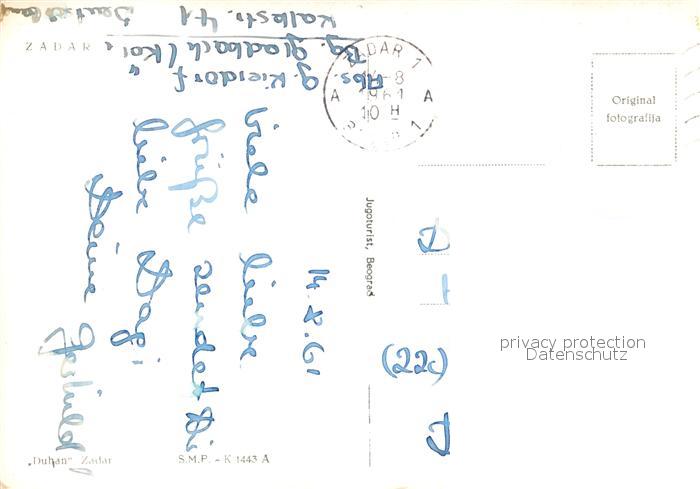 ZADAR
Abs. G. Kierdorf
Bg. Gladbach (Köln
Kalkstr. 41
Deutschland
ZADAR 1
A A
-8
1961
10 H
1
Original
fotografija
14.8.61
Viele liebe
Grüße sendet Dir
liebe Dagi
Deine
Jugoturist, Beograd
D
(22c)
privacy protection
Datenschutz
„Duhan“ Zadar
S.M.P. - K 1443 A